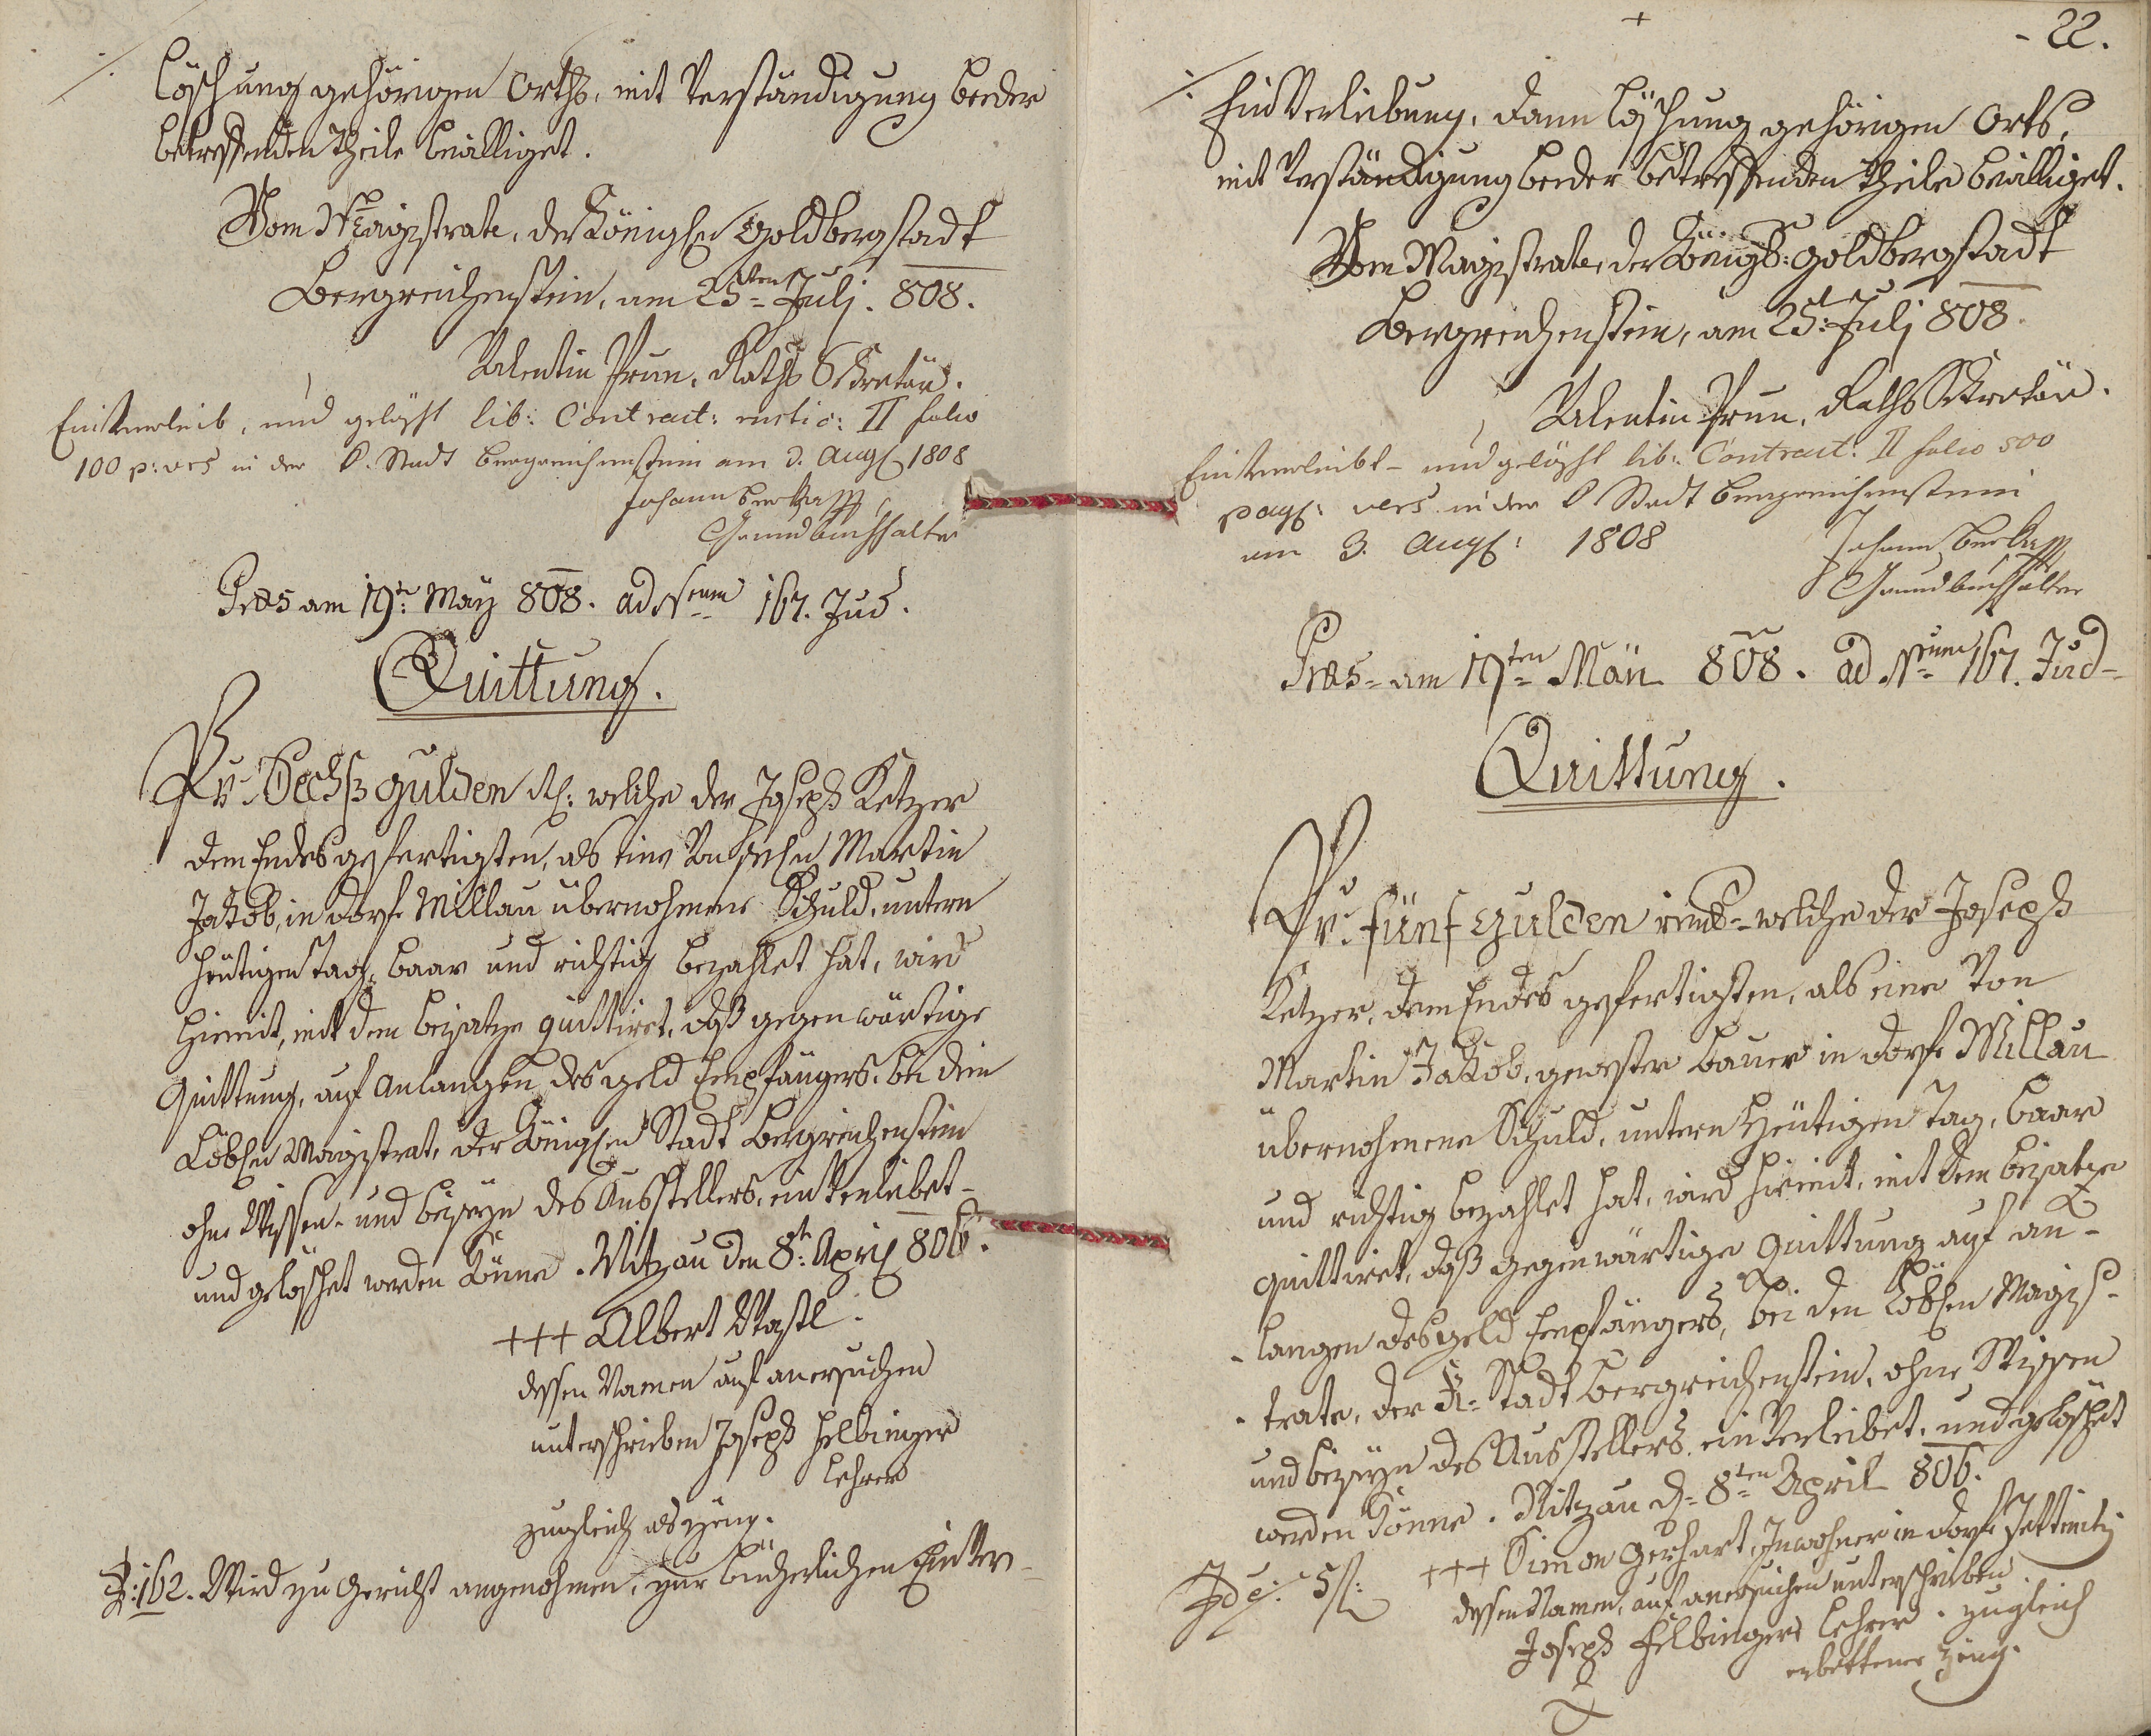 löschung gehörigen Orths, mit Verständigung beeder
betreffenden Theile bewilliget.
Vom Magistrate, der Königlen Goldbergstadt
Bergreichenstein, am 25ten Julj. 808.
Valentin Prun, Raths Sekretär.
Einverleib, und gelöscht lib: Contract: rustic: II folio
100 p: vers in der K. Stadt Bergreichenstein am 3. Aug 1808
Johann
Grundbuchhalter
Präs am 19t: May 808. ad Nrum 167. Jud.
Quittung.
Pr. Sechs Gulden welche der Joseph Ketzer
dem Endesgefertigten, als eine von Martin
Jakob, in Dorfe Millau übernohmene Schuld, untern
heutigen Tag, baar und richtig bezahlet hat, wird
hiemit, mit dem beisatze quittiret, daß gegenwärtige
Quittung, auf Anlangen des Geld Empfängers, bei dem
Löblen Magistrat, der Königlen Stadt Bergreichenstein
ohne Wissen- und beiseyn des Ausstellers, einverleibet-
und gelöschet werden könne. Nitzau den 8t: April 806.
+++ Albert Wastl.
dessen Namen auf anersuchen
unterschrieben Joseph Helbinger
Lehrer
zugleich als Zeug.
162. Wird zu Gericht angenohmen, zur bücherlichen Einver-
- 22.
Einverleibung, dann Löschung gehörigen Orts,
mit Verständigung beeder betreffenden Theile bewilliget.
Vom Magistrate, der Königl: Goldbergstadt
Bergreichenstein, am 25t: Julj 808.
Valentin Prun, Raths Sekretär.
Einverleibt- und gelöscht lib: Contract: II folio 500
pag: vers in der K Stadt Bergreichenstein
am 3. Aug: 1808
Johann
Grundbuchhalter
Präs- am 19ten 808. ad Nrum 167. Jud-
Quittung.
Pr. fünf Gulden welche der Joseph
Ketzer, dem Endes gefertigten, als eine von
Martin Jakob, gewester Bauer in Dorfe Millau
übernohmene Schuld, untern heutigen Tag, baar
und richtig bezahlet hat, wird hiemit, mit dem beisatze
quittiret, daß gegenwärtige Quittung auf an-
-langen des Geld Empfängers, bei den Löblen Magis-
-trate, der K- Stadt Bergreichenstein, ohne Wissen
und beiseyn des Ausstellers, einverleibet, und gelöschet
werden könne. Nitzau d- 8ten April 806.
5 f: +++ Simon Gerhart, Inwohner in Dorfe
dessen Namen, auf anersuchen unterschrieben
Joseph Helbinger Lehrer. zugleich
erbettener Zeug.